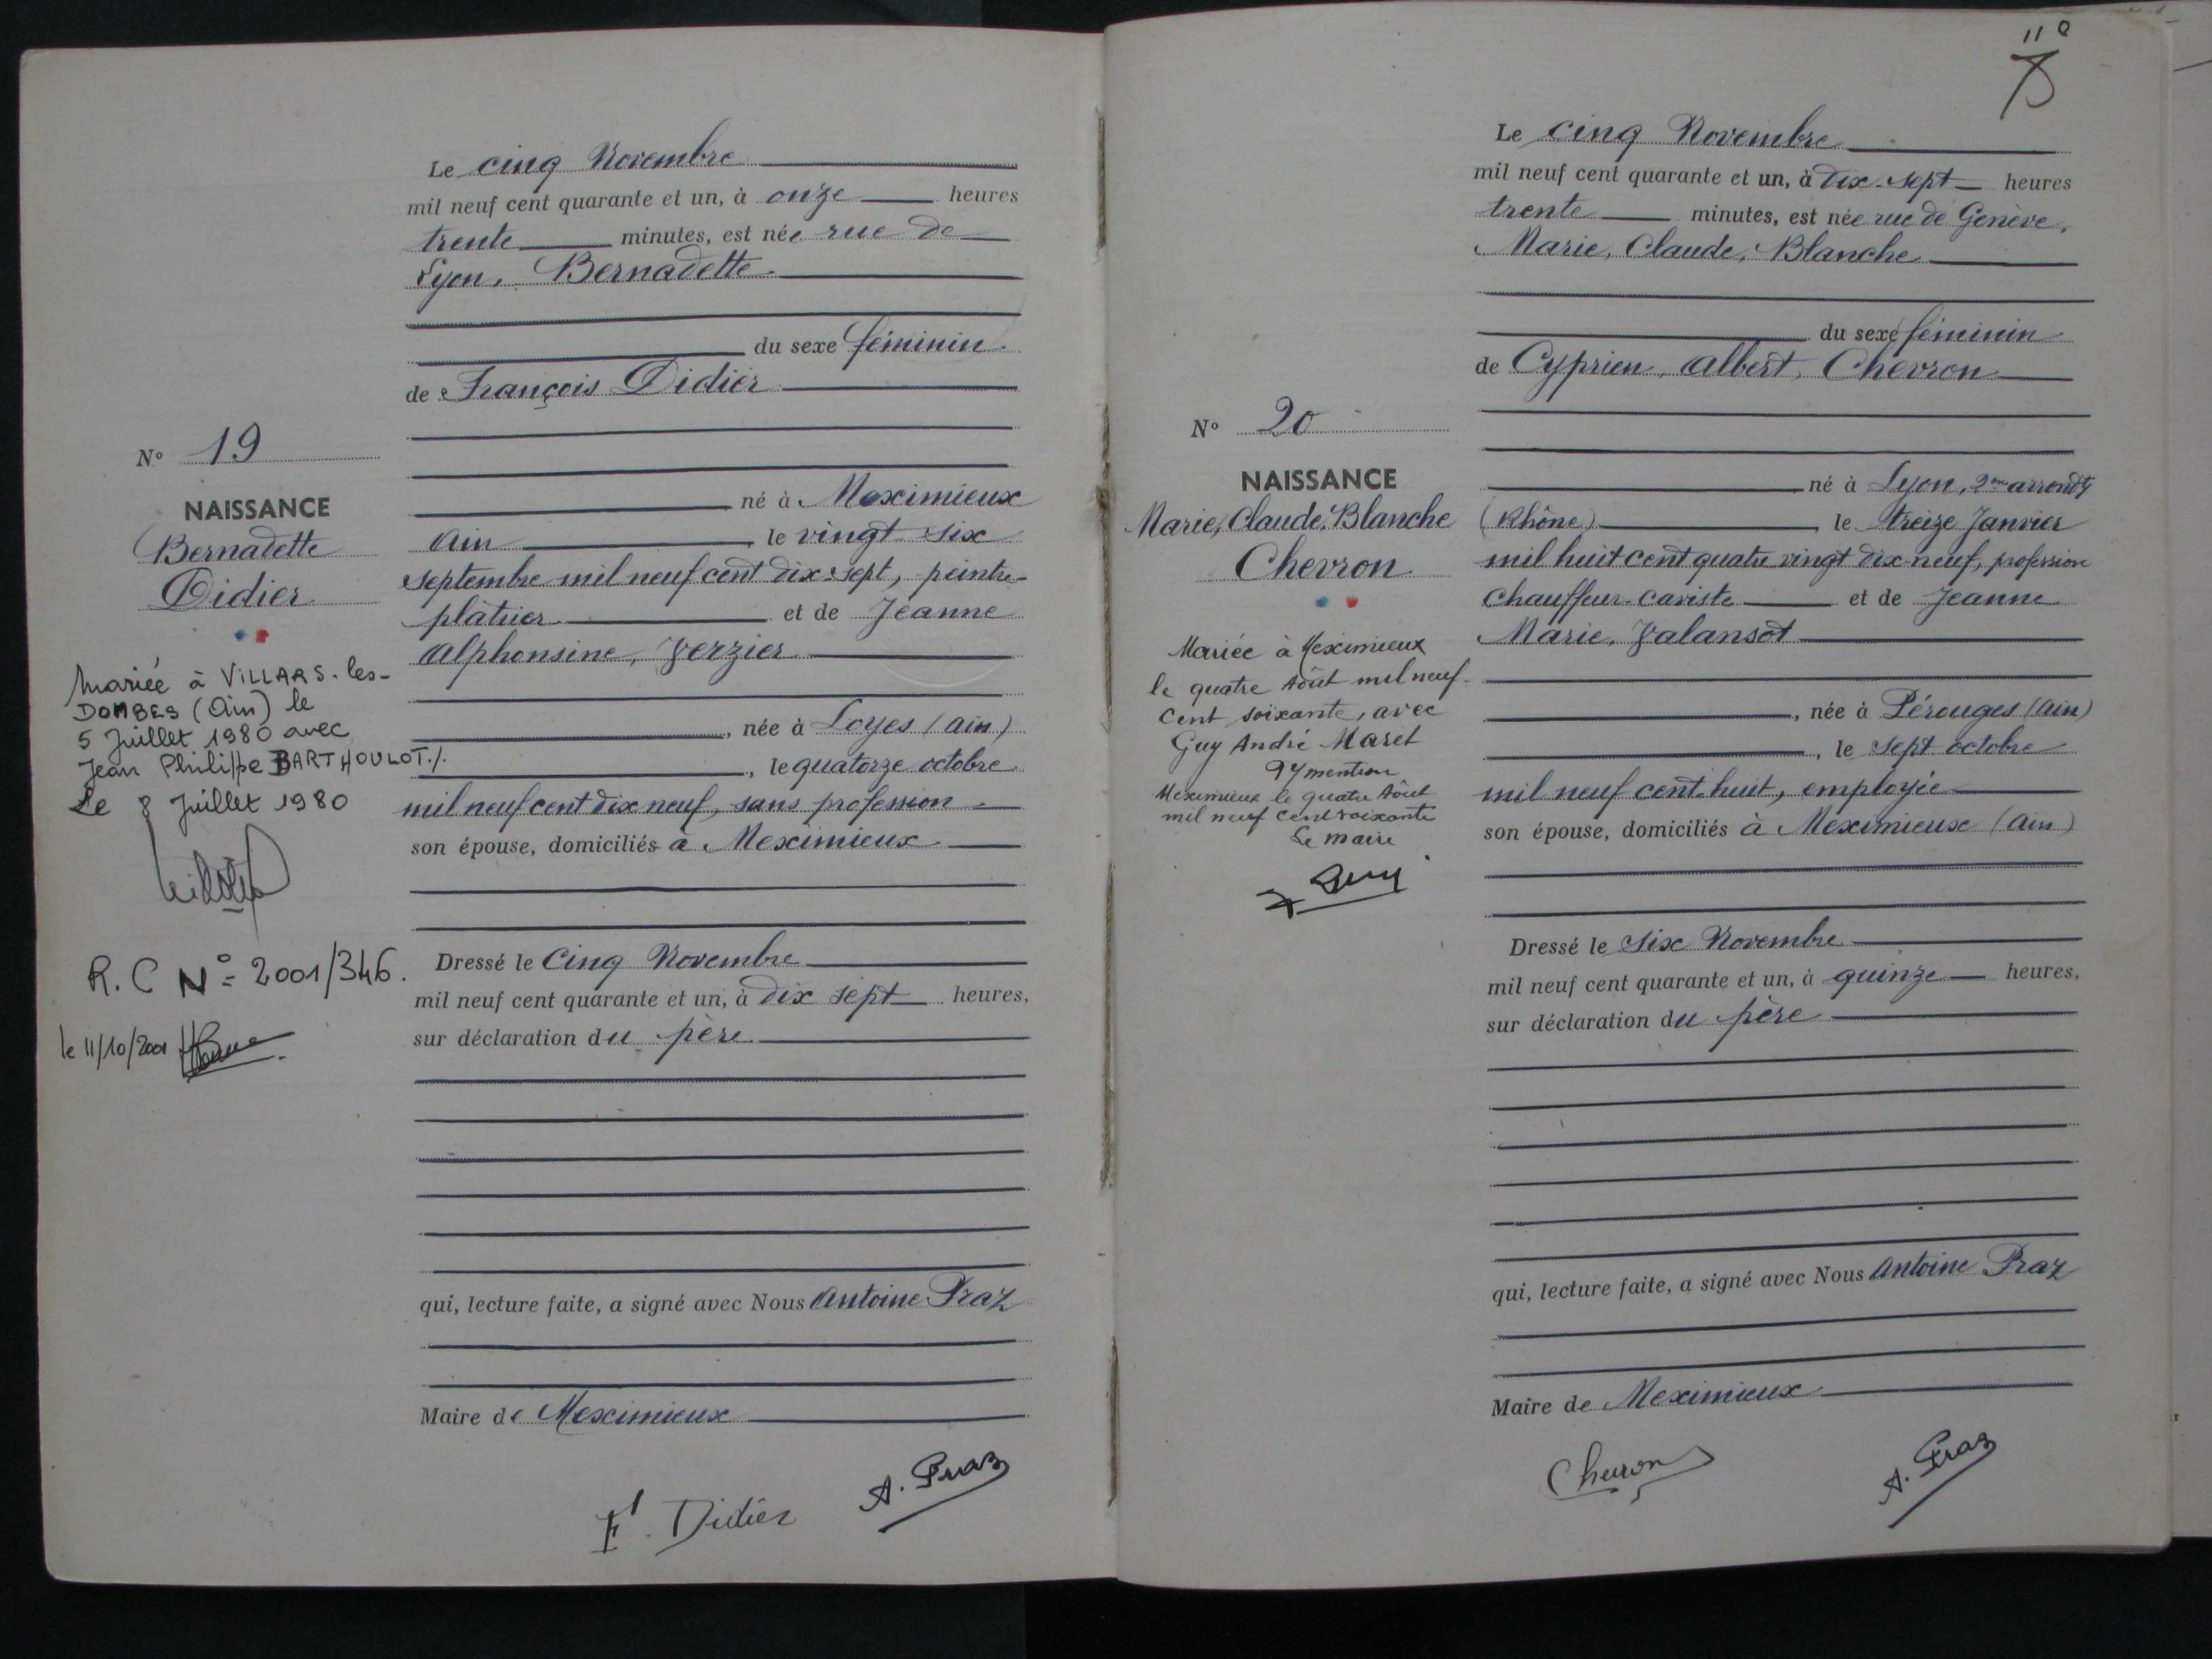 Le cinq Novembre
mil neuf cent quarante et un, à onze heures
trente minutes, est née rue de
Lyon, Bernadette
du sexe féminin
de François Didier
N° 19
NAISSANCE
Bernadette
Didier
né à Meximieux
Ain le vingt six
septembre mil neuf cent dix-sept, peintre-
plâtrier et de Jeanne
Alphonsine, Verzier
mariée à VILLARS-les-
DOMBES (Ain) le
5 Juillet 1980 avec
Jean Philippe BARTHOULOT./.
Le 8 Juillet 1980
, née à Loyes (Ain)
, le quatorze octobre
mil neuf cent dix neuf, sans profession
son épouse, domiciliés à Meximieux
R.C N° 2001/346.
le 11/10/2001
Dressé le Cinq Novembre
mil neuf cent quarante et un, à dix sept heures,
sur déclaration du père
qui, lecture faite, a signé avec Nous Antoine Praz
Maire de Meximieux
F. Didier
A. Praz
Le cinq Novembre
mil neuf cent quarante et un, à dix-sept heures
trente minutes, est née rue de Genève,
Marie, Claude, Blanche
du sexe féminin
de Cyprien, Albert, Chevron
N° 20
NAISSANCE
Marie, Claude, Blanche
Chevron
né à Lyon, 2me arrondt
(Rhône) le treize Janvier
mil huit cent quatre vingt dix-neuf, profession
chauffeur-cariste et de Jeanne
Marie, Valansot
Mariée à Meximieux
le quatre Août mil neuf
cent soixante, avec
Guy André Maret
mention
Meximieux le quatre Août
mil neuf cent soixante
Le maire
, née à Pérouges (Ain)
, le sept octobre
mil neuf cent-huit, employée
son épouse, domiciliés à Meximieux (Ain)
Dressé le six Novembre
mil neuf cent quarante et un, à quinze heures,
sur déclaration du père
qui, lecture faite, a signé avec Nous Antoine Praz
Maire de Meximieux
Chevron
A. Praz